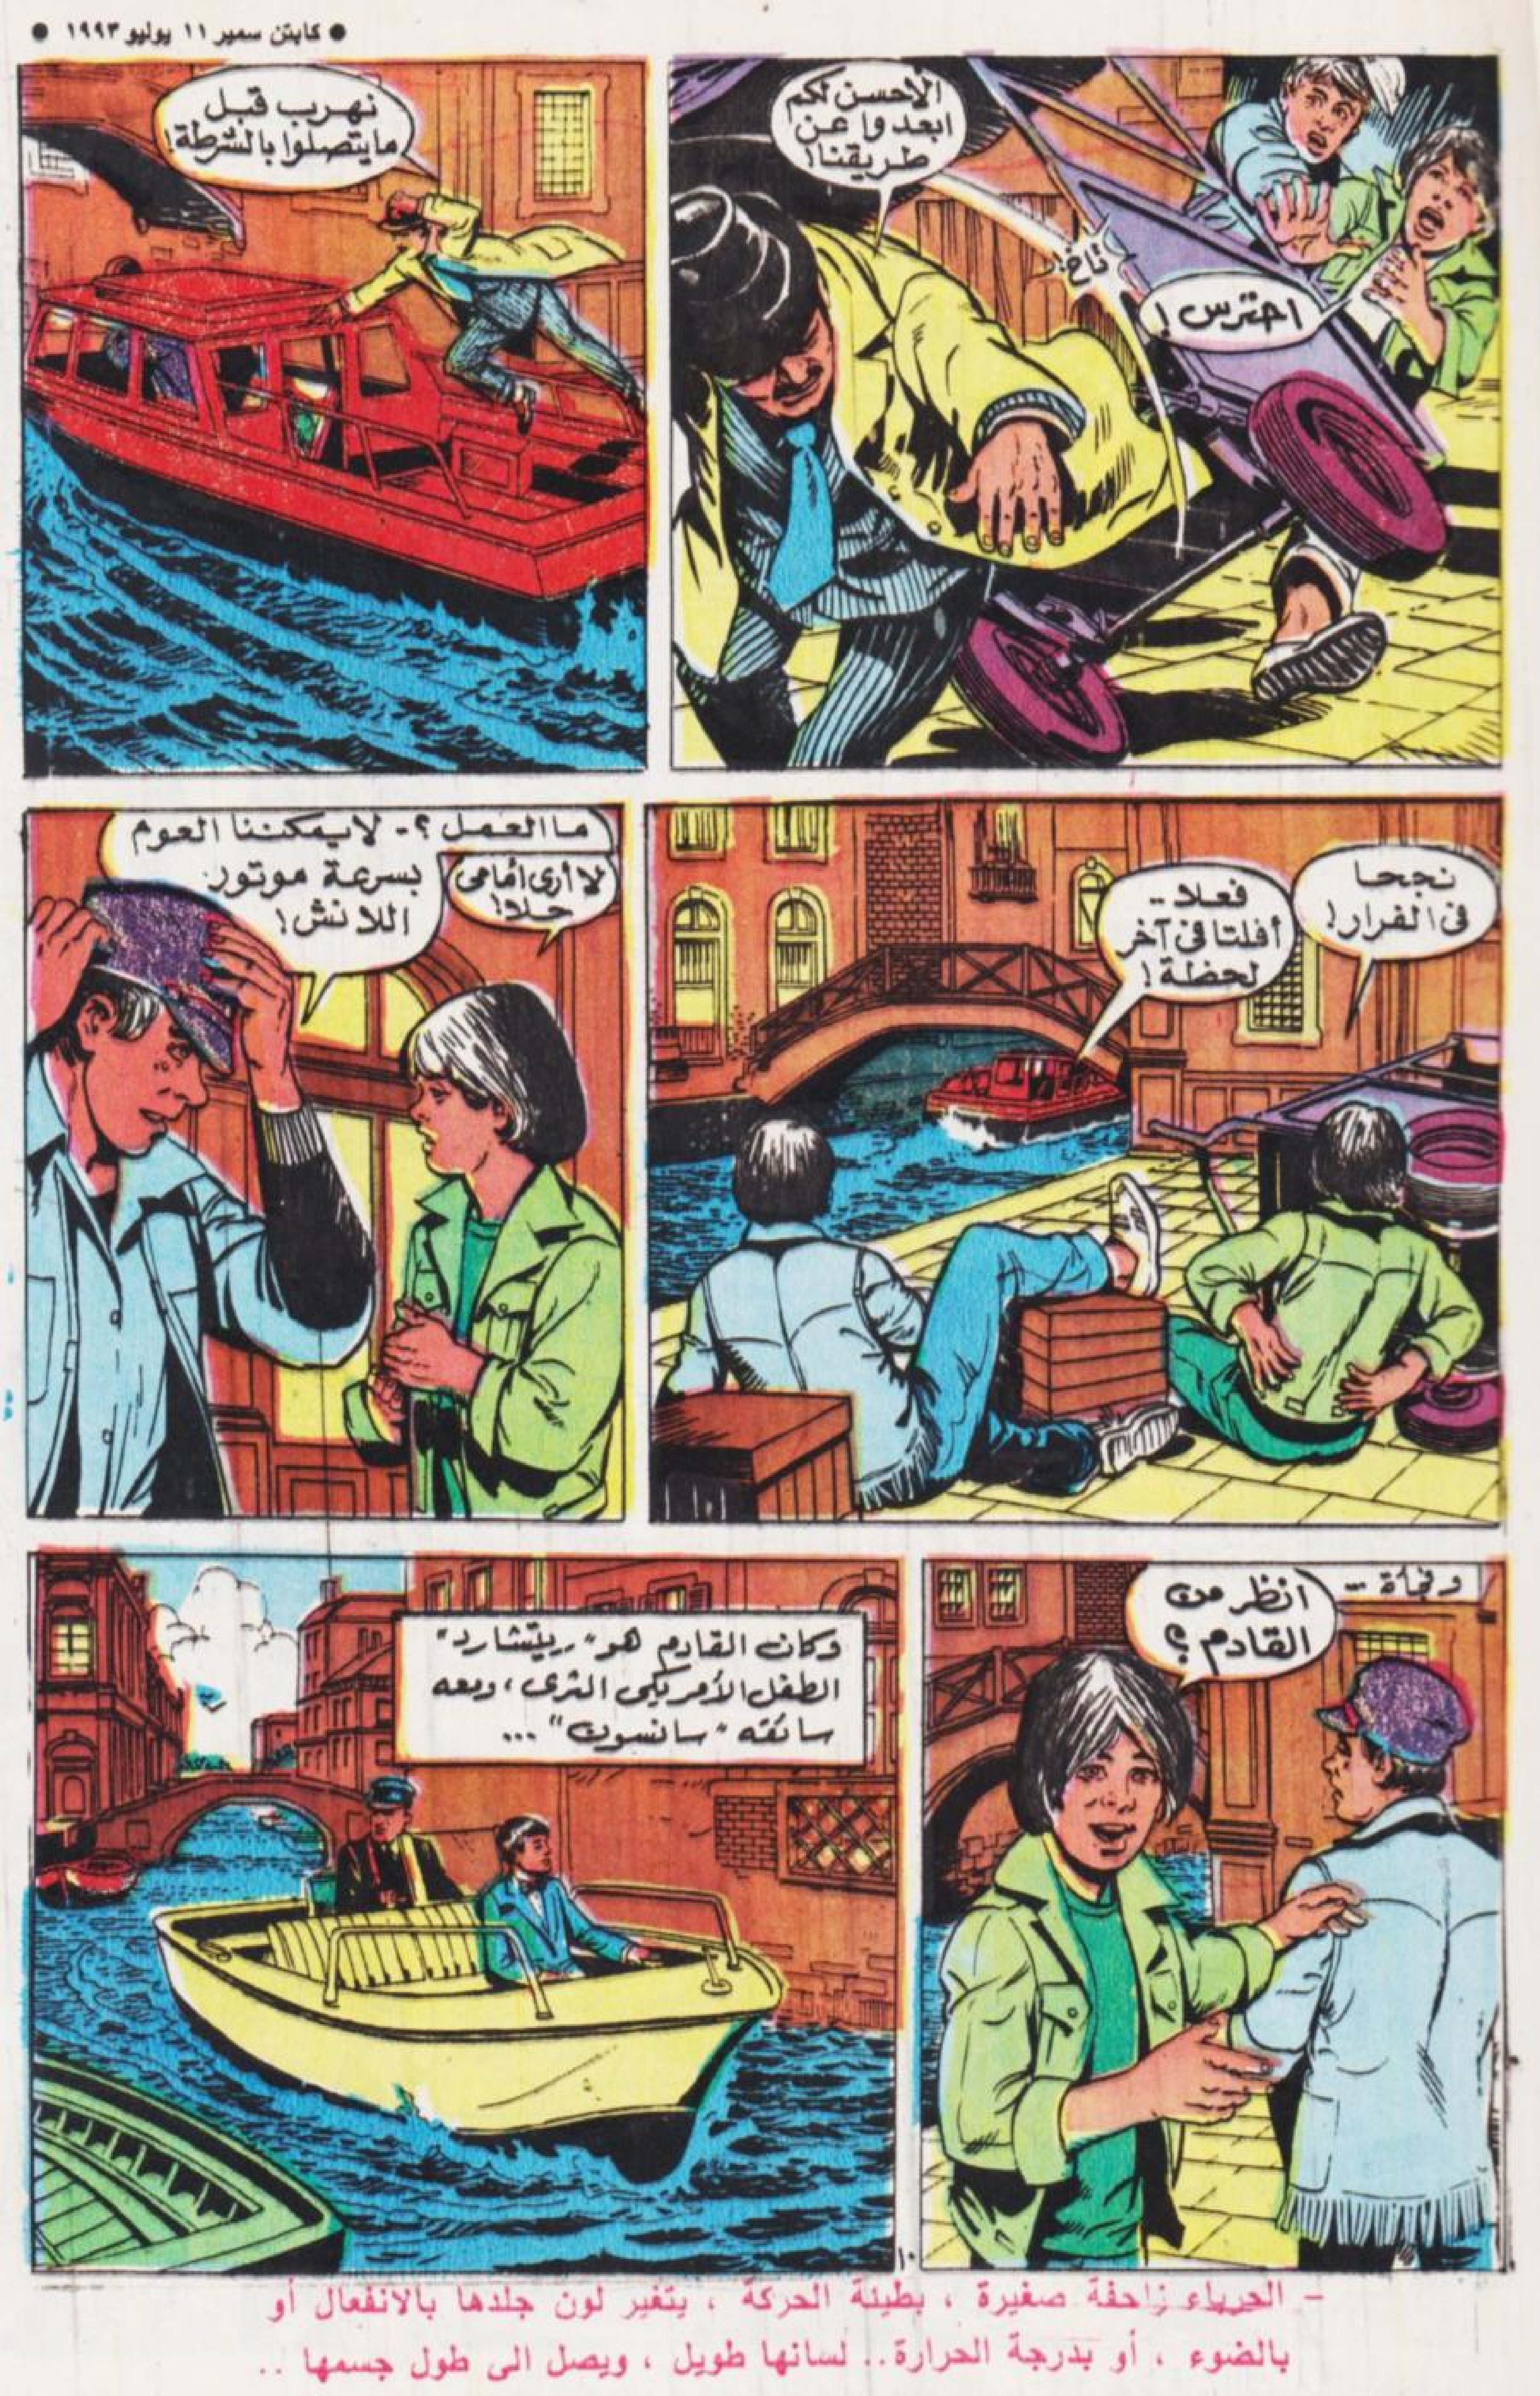 ● كابتن سمير ١١ يوليو ١٩٩٣ ●
الأحسن لكم
ابعدوا عن
طريقنا!
طاخ!
احترس!
نهرب قبل
مايتصلوا بالشرطة!
نجحا
فى الفرار!
فعلا --
أفلتا فى آخر
لحظة!
ما العمل ؟ - لايمكننا العوم
بسرعة موتور
اللانش!
لا أرى أمامى
حلا!
وفجأة ...
انظر من
القادم ؟
وكان القادم هو "ريتشارد"
الطفل الأمريكى الثرى ، ومعه
سائقه "سانسون" ...
١٠
- الحرباء زاحفة صغيرة ، بطيئة الحركة ، يتغير لون جلدها بالانفعال أو
بالضوء ، أو بدرجة الحرارة .. لسانها طويل ، ويصل الى طول جسمها ..